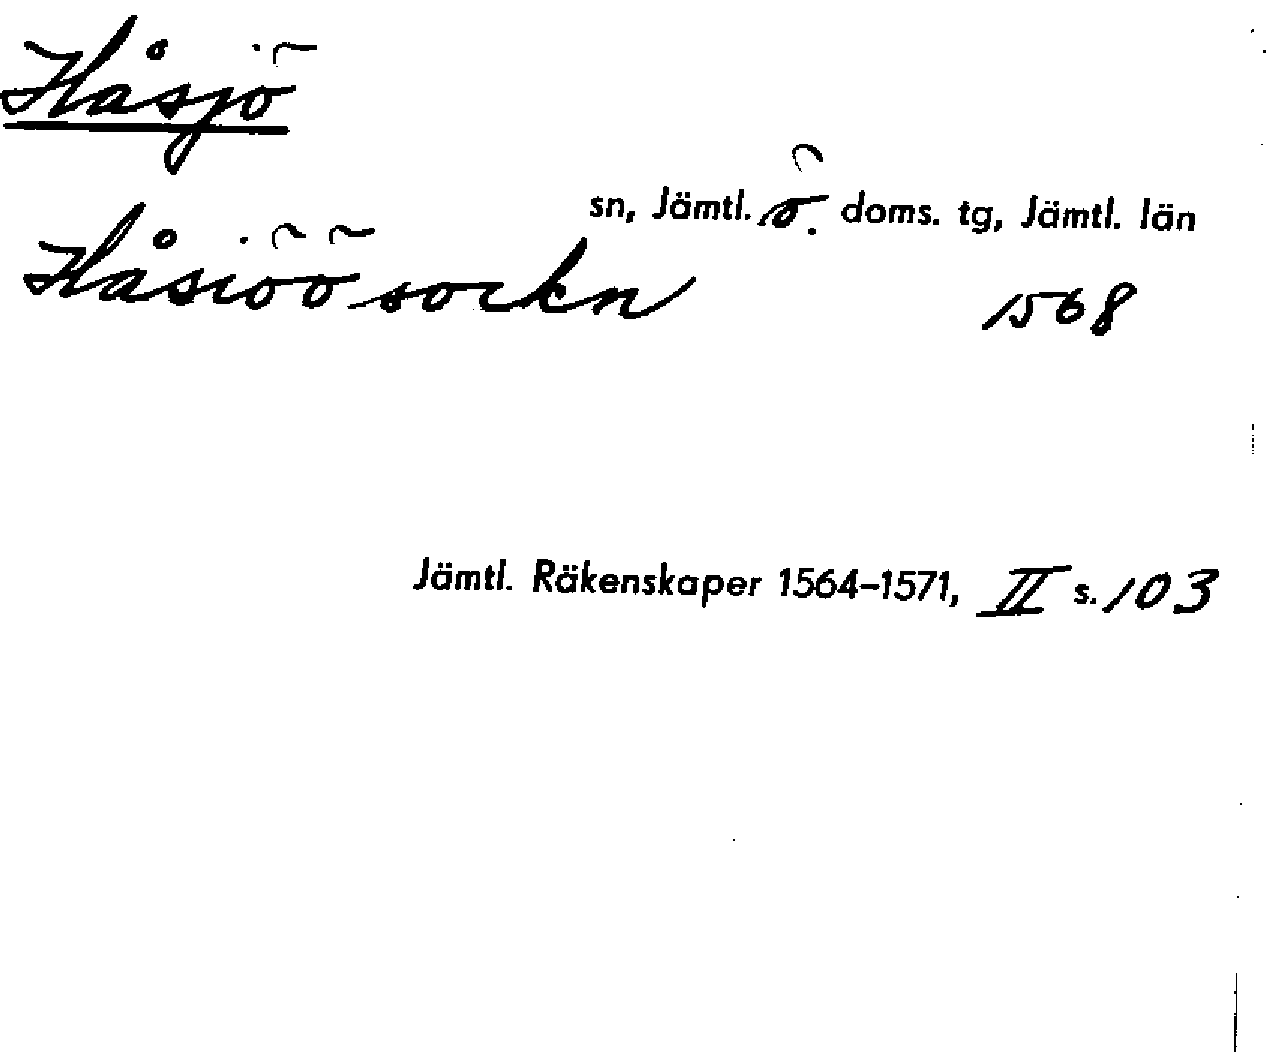 Håsjö
sn, Jämtl. ö. doms. tg, Jämtl. län
Håsiöö sockn 1568
Jämtl. Räkenskaper 1564-1571, II s. 103